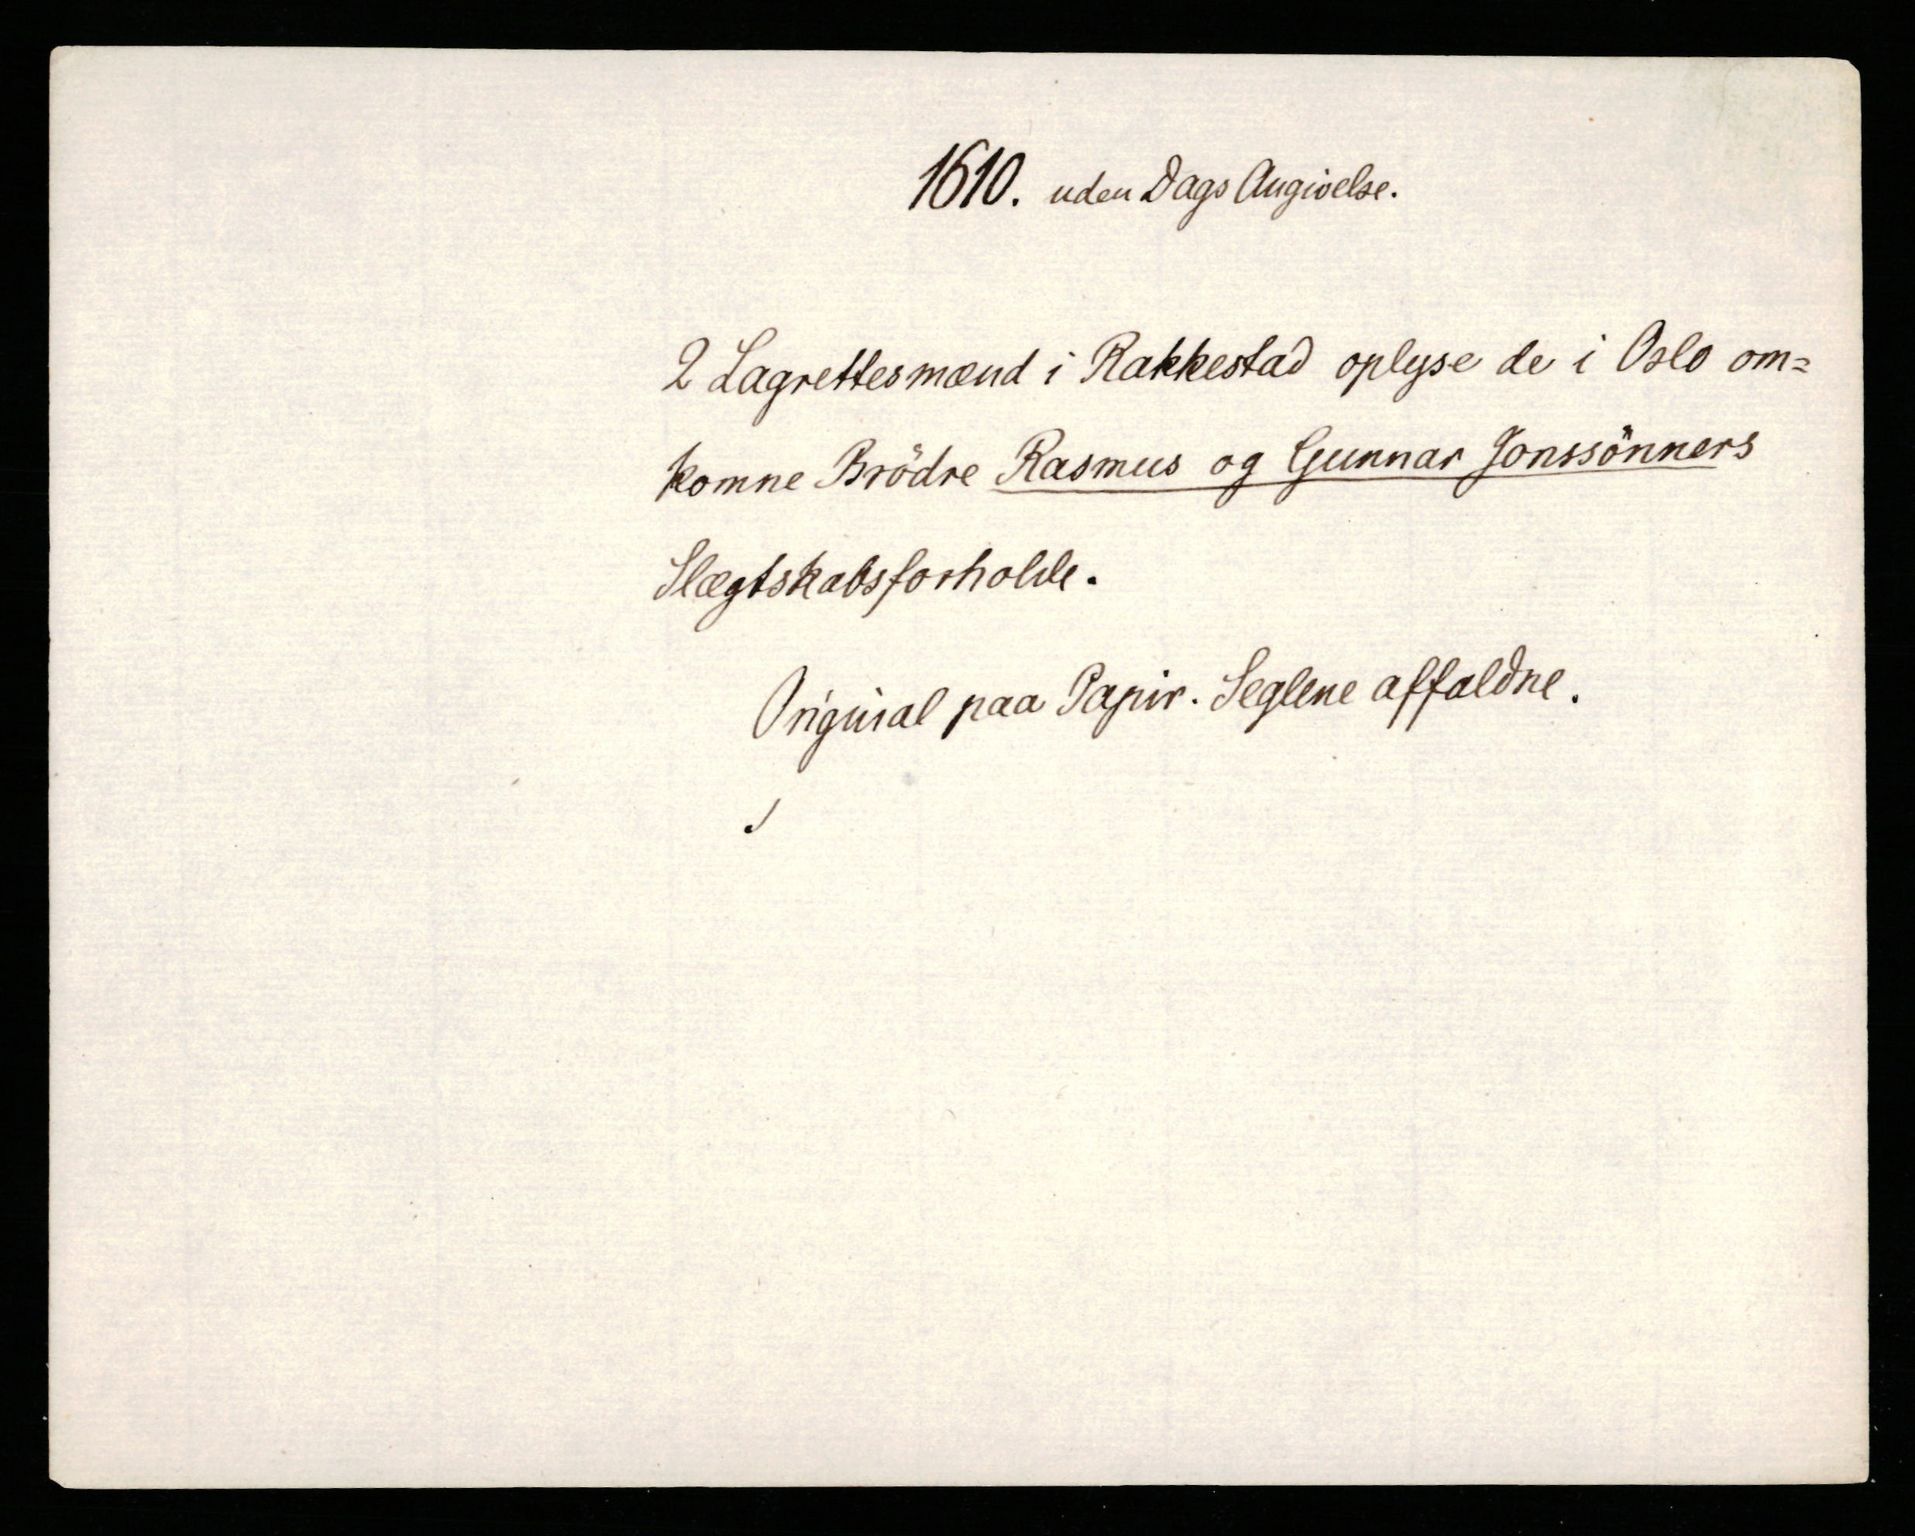 1610. uden Dags Angivelse.
2 Lagrettesmænd i Rakkestad oplyse de i Oslo om=
komne Brödre Rasmus og Gunnar Jonssönners
Slægtskabsforholde.
Original paa Papir. Seglene affaldne.